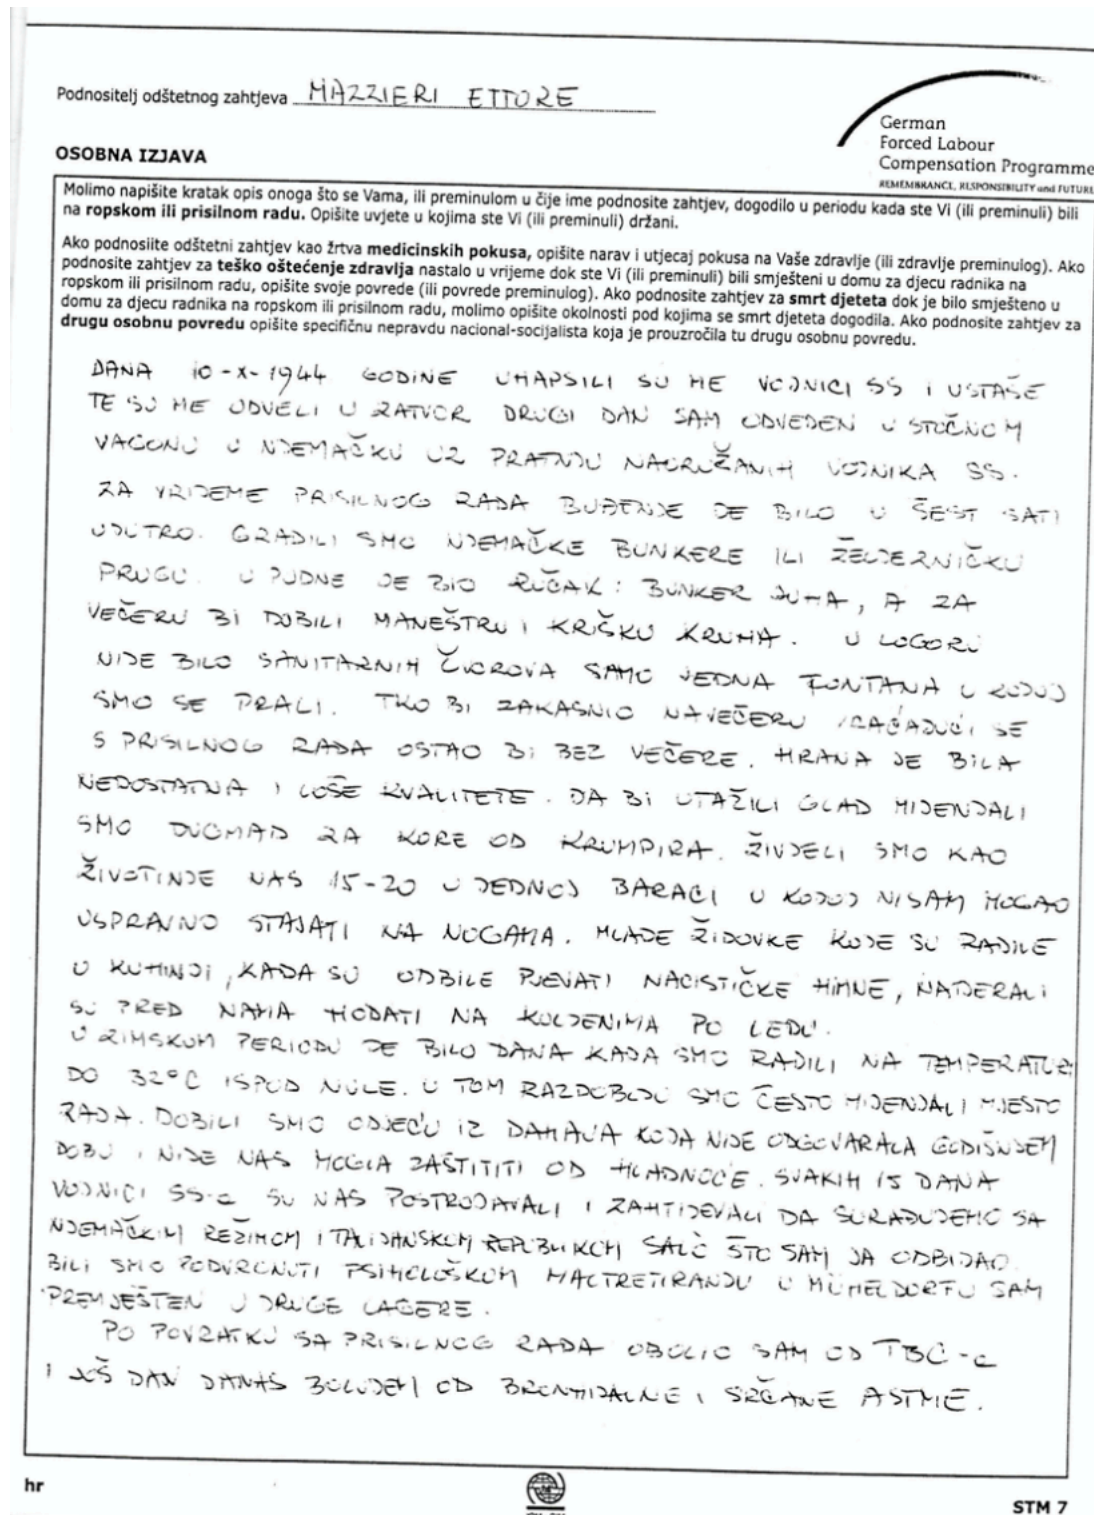 Podnositelj odštetnog zahtjeva MAZZIERI ETTORE
German
Forced Labour
Compensation Programme
REMEMBRANCE, RESPONSIBILITY and FUTURE
OSOBNA IZJAVA
Molimo napišite kratak opis onoga što se Vama, ili preminulom u čije ime podnosite zahtjev, dogodilo u periodu kada ste Vi (ili preminuli) bili
na ropskom ili prisilnom radu. Opišite uvjete u kojima ste Vi (ili preminuli) držani.
Ako podnosiite odštetni zahtjev kao žrtva medicinskih pokusa, opišite narav i utjecaj pokusa na Vaše zdravlje (ili zdravlje preminulog). Ako
podnosite zahtjev za teško oštećenje zdravlja nastalo u vrijeme dok ste Vi (ili preminuli) bili smješteni u domu za djecu radnika na
ropskom ili prisilnom radu, opišite svoje povrede (ili povrede preminulog). Ako podnosite zahtjev za smrt djeteta dok je bilo smješteno u
domu za djecu radnika na ropskom ili prisilnom radu, molimo opišite okolnosti pod kojima se smrt djeteta dogodila. Ako podnosite zahtjev za
drugu osobnu povredu opišite specifičnu nepravdu nacional-socijalista koja je prouzročila tu drugu osobnu povredu.
DANA 10-X-1944 GODINE UHAPSILI SU ME VOJNICI SS I USTAŠE
TE SU ME ODVELI U ZATVOR DRUGI DAN SAM ODVEDEN U STOČNOM
VAGONU U NJEMAČKU UZ PRATNJU NAORUŽANIH VOJNIKA SS.
ZA VRIJEME PRISILNOG RADA BUĐENJE JE BILO U ŠEST SATI
UJUTRO. GRADILI SMO NJEMAČKE BUNKERE ILI ŽELJEZNIČKU
PRUGU. U PODNE JE BIO RUČAK: BUNKER JUHA, A ZA
VEČERU BI DOBILI MANEŠTRU I KRIŠKU KRUHA. U LOGORU
NIJE BILO SANITARNIH ČVOROVA SAMO JEDNA FONTANA U KOJOJ
SMO SE PRALI. TKO BI ZAKASNIO NA VEČERU VRAĆAJUĆI SE
S PRISILNOG RADA OSTAO BI BEZ VEČERE. HRANA JE BILA
NEDOSTATNA I LOŠE KVALITETE. DA BI UTAŽILI GLAD MIJENJALI
SMO DUOMAD ZA KORE OD KRUMPIRA. ŽIVJELI SMO KAO
ŽIVOTINJE NAS 15-20 U JEDNOJ BARACI U KOJOJ NISAM MOGAO
USPRAVNO STAJATI NA NOGAMA. MLADE ŽIDOVKE KOJE SU RADILE
U KUHINJI, KADA SU ODBILE PJEVATI NACISTIČKE HIMNE, NATJERALI
SU PRED NAMA HODATI NA KOLJENIMA PO LEDU.
U ZIMSKOM PERIODU JE BILO DANA KADA SMO RADILI NA TEMPERATURI
DO 32°C ISPOD NULE. U TOM RAZDOBLJU SMO ČESTO MIJENJALI MJESTO
RADA. DOBILI SMO ODJEĆU IZ DAHAUA KOJA NIJE ODGOVARALA GODIŠNJEM
DOBU I NIJE NAS MOGLA ZAŠTITITI OD HLADNOĆE. SVAKIH 15 DANA
VOJNICI SS-a SU NAS POSTROJAVALI I ZAHTIJEVALI DA SURAĐUJEMO SA
NJEMAČKIM REŽIMOM I TALIJANSKOM REPUBLIKOM SALÒ ŠTO SAM JA ODBIJAO.
BILI SMO PODVRGNUTI PSIHOLOŠKOM MALTRETIRANJU U MÜHELDORFU SAM
PREMJEŠTEN U DRUGE LAGERE.
PO POVRATKU SA PRISILNOG RADA OBOLIO SAM OD TBC-a
I JOŠ DAN DANAS BOLUJEM OD BRONHIJALNE I SRČANE ASTME.
hr
STM 7